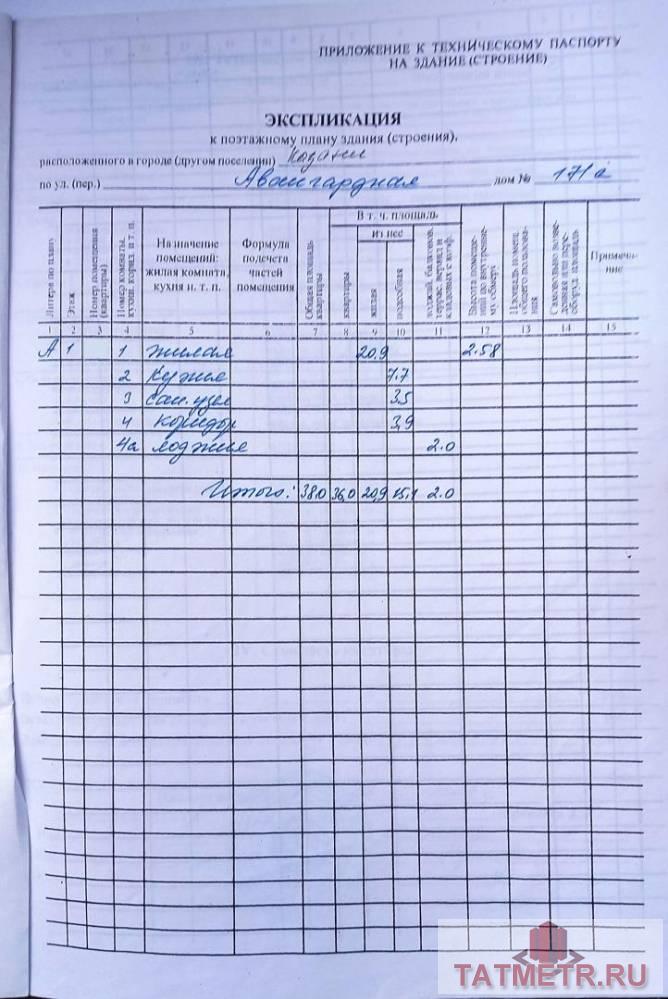 ПРИЛОЖЕНИЕ К ТЕХНИЧЕСКОМУ ПАСПОРТУ
НА ЗДАНИЕ (СТРОЕНИЕ)
ЭКСПЛИКАЦИЯ
к поэтажному плану здания (строения),
расположенного в городе (другом поселении) Казани
по ул. (пер.) Авангардная дом № 171а
Литера по плану
Этаж
Номер помещения (квартиры)
Номер комнаты, кухни, корид. и т. п.
Назначение помещений: жилая комната, кухня и. т. п.
Формула подсчета частей помещения
Общая площадь квартиры
В т. ч. площадь
квартиры
из нее
жилая
подсобная
лоджий, балконов, террас, веранд и кладовых с коэф.
Высота помещений по внутреннему обмеру
Площадь помещ. общего пользования
Самовольно возведенная или переоборуд. площадь
Примечание
1 2 3 4 5 6 7 8 9 10 11 12 13 14 15
А 1 1 жилая 20,9 2.58
2 кухня 7.7
3 сан. узел 3.5
4 коридор 3,9
4а лоджия 2.0
Итого: 38.0 36,0 20,9 15,1 2.0
TATMETR.RU